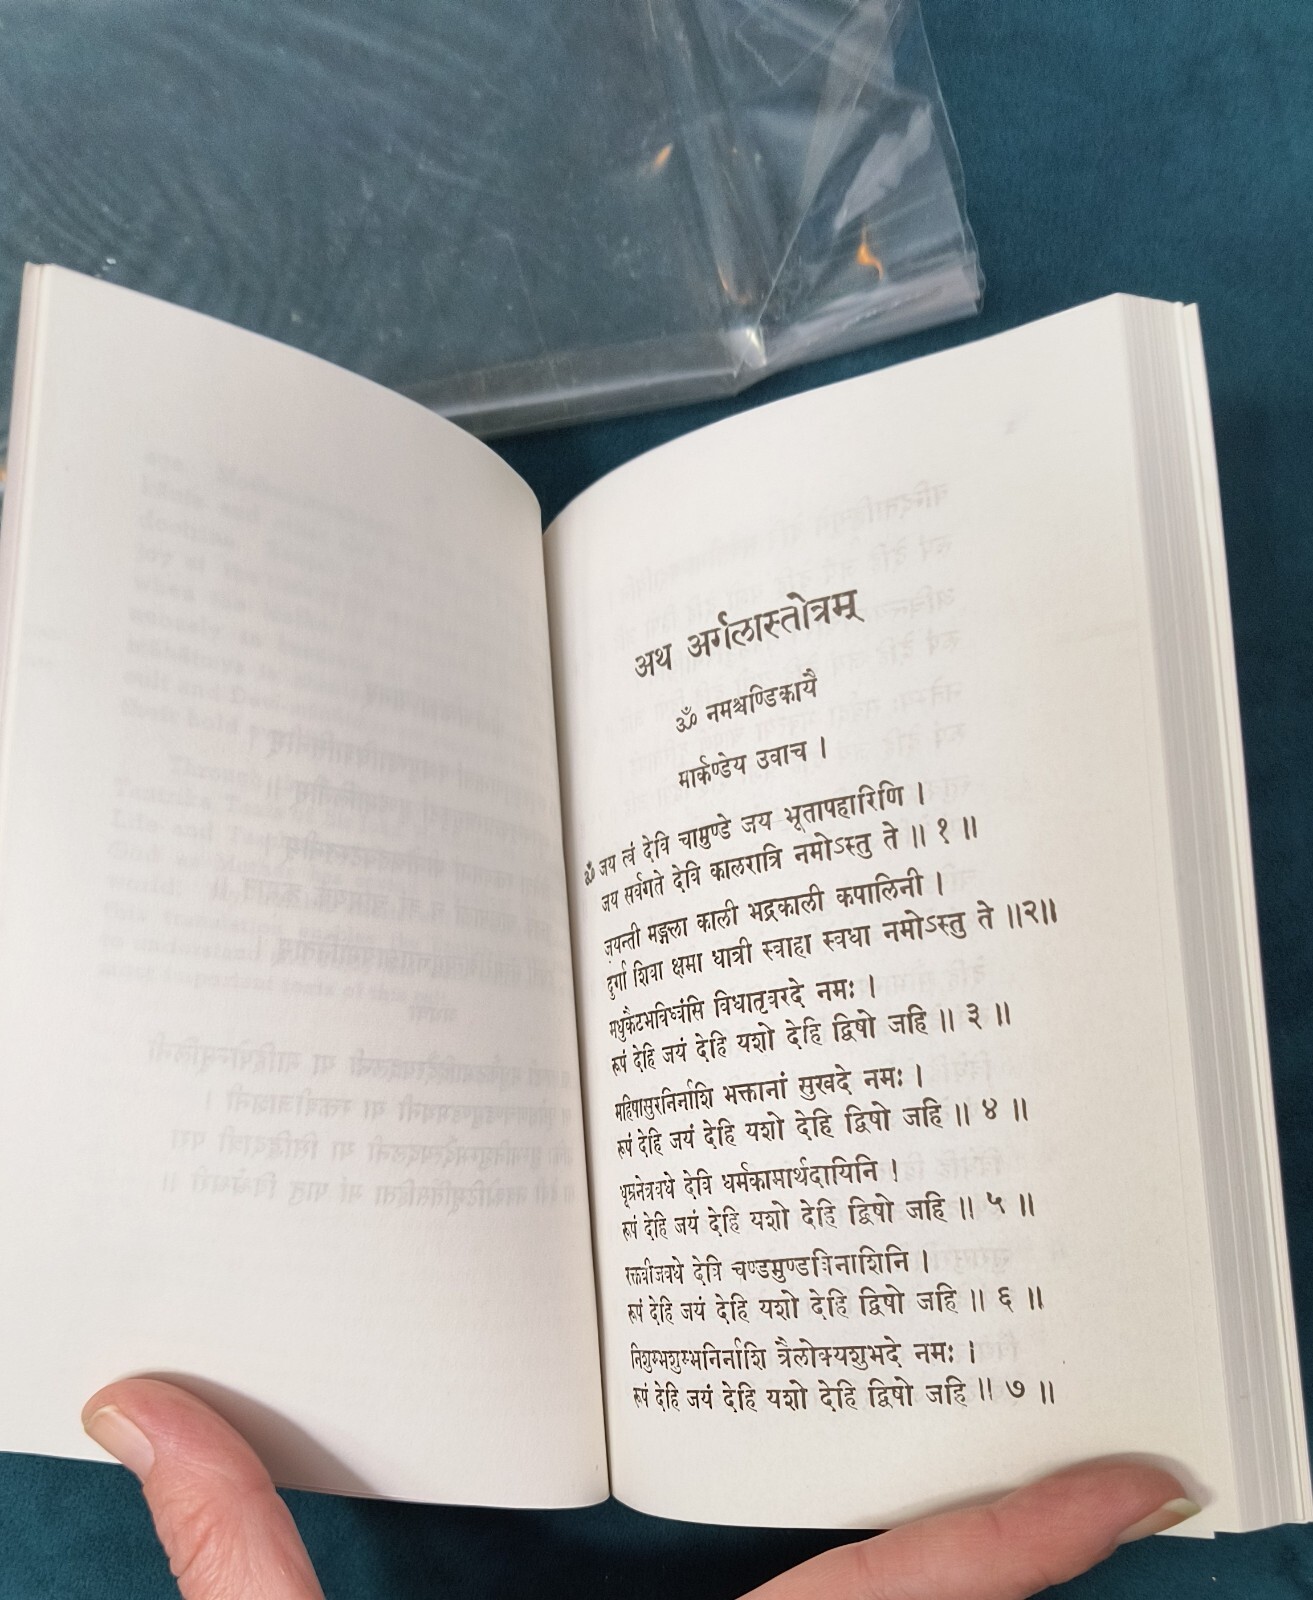 अथ अर्गलास्तोत्रम्
ॐ नमश्चण्डिकायै
मार्कण्डेय उवाच ।
ॐ जय त्वं देवि चामुण्डे जय भूतापहारिणि ।
जय सर्वगते देवि कालरात्रि नमोऽस्तु ते ॥ १ ॥
जयन्ती मङ्गला काली भद्रकाली कपालिनी ।
दुर्गा शिवा क्षमा धात्री स्वाहा स्वधा नमोऽस्तु ते ॥२॥
मधुकैटभविध्वंसि विधातृवरदे नमः ।
रूपं देहि जयं देहि यशो देहि द्विषो जहि ॥ ३ ॥
महिषासुरनिर्नाशि भक्तानां सुखदे नमः ।
रूपं देहि जयं देहि यशो देहि द्विषो जहि ॥ ४ ॥
धूम्रनेत्रवधे देवि धर्मकामार्थदायिनि ।
रूपं देहि जयं देहि यशो देहि द्विषो जहि ॥ ५ ॥
रक्तबीजवधे देवि चण्डमुण्डविनाशिनि ।
रूपं देहि जयं देहि यशो देहि द्विषो जहि ॥ ६ ॥
निशुम्भशुम्भनिर्नाशि त्रैलोक्यशुभदे नमः ।
रूपं देहि जयं देहि यशो देहि द्विषो जहि ॥ ७ ॥